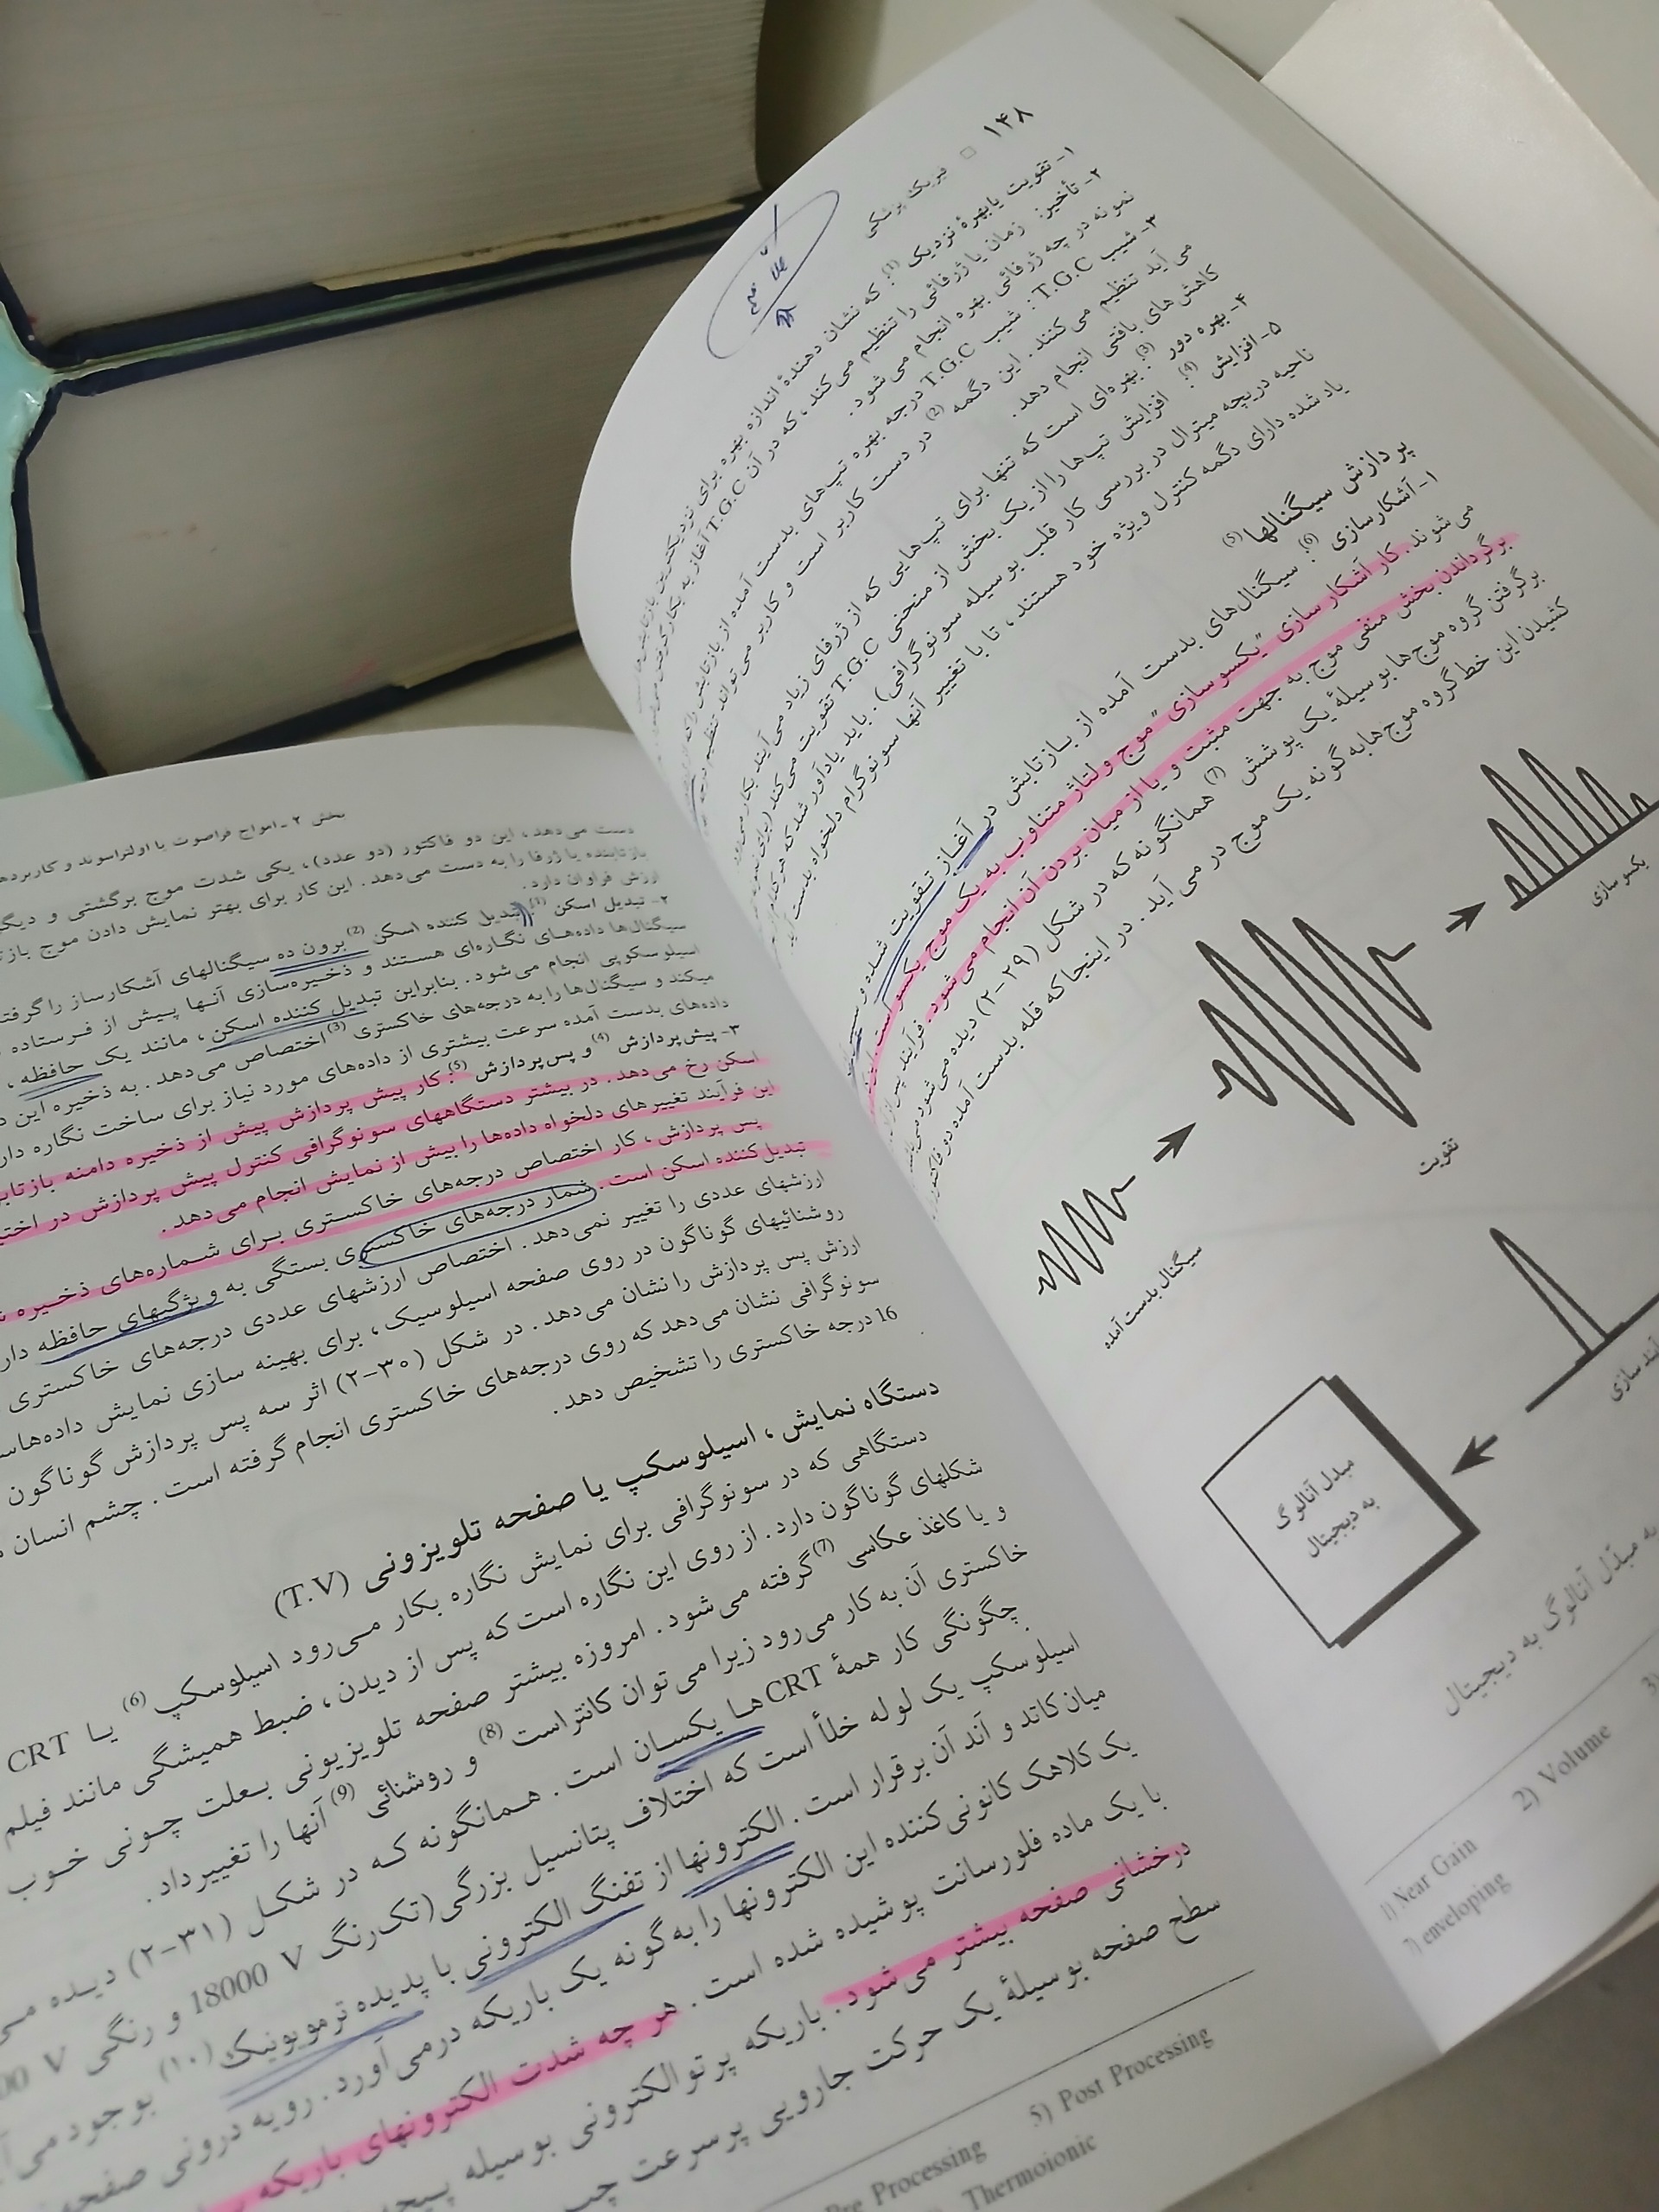 ۱۴۸ □ فیزیک پزشکی
۱- تقویت یا بهرهٔ نزدیک (1): که نشان دهندهٔ اندازه بهره برای نزدیکترین بازتابش‌ها
۲- تأخیر: زمان یا ژرفائی را تنظیم می‌کند، که در آن T.G.C آغاز به بکار
نمونه در چه ژرفائی بهره انجام می‌شود.
۳- شیب T.G.C: شیب T.G.C درجه بهره تپ‌های بدست آمده از بازتابش را که
می‌آید تنظیم می‌کنند. این دگمه (2) در دست کاربر است و کاربر می‌تواند تنظیم درجه
کاهش‌های بافتی انجام دهد.
۴- بهره دور (3): بهره‌ای است که تنها برای تپ‌هایی که از ژرفای زیاد می‌آیند بکار می‌رود
۵- افزایش (4): افزایش تپ‌ها را از یک بخش از منحنی T.G.C تقویت می‌کند (برای
ناحیه دریچه میترال در بررسی کار قلب بوسیله سونوگرافی). باید یادآور شد که هر
یاد شده دارای دگمه کنترل ویژه خود هستند، تا با تغییر آنها سونوگرام دلخواه بدست
پردازش سیگنالها (5)
۱- آشکارسازی (6): سیگنال‌های بدست آمده از بازتابش در آغاز تقویت شده و سپس
می‌شوند. کار آشکار سازی "یکسوسازی" موج ولتاژ متناوب به یک موج یکسو است.
برگرداندن بخش منفی موج به جهت مثبت و یا از میان بردن آن انجام می‌شود. فرآیند پس از
برگرفتن گروه موج‌ها بوسیلهٔ یک پوشش (7) همانگونه که در شکل (۲۹-۲) دیده می‌شود
کشیدن این خط گروه موج‌ها به گونه یک موج در می‌آید. در اینجا که قله بدست آمده دو فاکتور
یکسو سازی
تقویت
سیگنال بدست آمده
مبدل آنالوگ
به دیجیتال
به مبدّل آنالوگ به دیجیتال
1) Near Gain 2) Volume
7) enveloping
بخش ۲ - امواج فراصوت یا اولتراسوند و کاربردها
دست می‌دهد، این دو فاکتور (دو عدد)، یکی شدت موج برگشتی و
بازتابنده یا ژرفا را به دست می‌دهد. این کار برای بهتر نمایش دادن موج
ارزش فراوان دارد.
۲- تبدیل اسکن (1): تبدیل کننده اسکن (2) برون ده سیگنالهای آشکارساز را
سیگنال‌ها داده‌های نگاره‌ای هستند و ذخیره‌سازی آنها پیش از فرستاده
اسیلوسکوپی انجام می‌شود. بنابراین تبدیل کننده اسکن، مانند یک حافظه،
میکند و سیگنال‌ها را به درجه‌های خاکستری (3) اختصاص می‌دهد. به ذخیره این
داده‌های بدست آمده سرعت بیشتری از داده‌های مورد نیاز برای ساخت نگاره
۳- پیش‌پردازش (4) و پس‌پردازش (5): کار پیش پردازش پیش از ذخیره دامنه
اسکن رخ می‌دهد. در بیشتر دستگاههای سونوگرافی کنترل پیش پردازش در
این فرآیند تغییرهای دلخواه داده‌ها را پیش از نمایش انجام می‌دهد.
پس پردازش، کار اختصاص درجه‌های خاکستری برای شماره‌های ذخیره
تبدیل کننده اسکن است. شمار درجه‌های خاکستری بستگی به ویژگیهای حافظه
ارزشهای عددی را تغییر نمی‌دهد. اختصاص ارزشهای عددی درجه‌های خاکستری
روشنائیهای گوناگون در روی صفحه اسیلوسیک، برای بهینه سازی نمایش
ارزش پس پردازش را نشان می‌دهد. در شکل (۳۰-۲) اثر سه پس پردازش گوناگون
سونوگرافی نشان می‌دهد که روی درجه‌های خاکستری انجام گرفته است. چشم انسان
16 درجه خاکستری را تشخیص دهد.
دستگاه نمایش، اسیلوسکپ یا صفحه تلویزونی (T.V)
دستگاهی که در سونوگرافی برای نمایش نگاره بکار می‌رود اسیلوسکپ (6) یا CRT
شکلهای گوناگون دارد. از روی این نگاره است که پس از دیدن، ضبط همیشگی مانند فیلم
و یا کاغذ عکاسی (7) گرفته می‌شود. امروزه بیشتر صفحه تلویزیونی بعلت چونی خوب
خاکستری آن به کار می‌رود زیرا می‌توان کانتراست (8) و روشنائی (9) آنها را تغییر داد.
چگونگی کار همهٔ CRT ها یکسان است. همانگونه که در شکل (۳۱-۲) دیده
اسیلوسکپ یک لوله خلأ است که اختلاف پتانسیل بزرگی (تک‌رنگ 18000 V و رنگی
میان کاتد و آند آن برقرار است. الکترونها از تفنگ الکترونی با پدیده ترمویونیک (۱۰) بوجود می‌
یک کلاهک کانونی کننده این الکترونها را به گونه یک باریکه درمی‌آورد. رویه درونی صفحه
با یک ماده فلورسانت پوشیده شده است. هر چه شدت الکترونهای باریکه
درخشانی صفحه بیشتر می‌شود. باریکه پرتو الکترونی بوسیله
سطح صفحه بوسیلهٔ یک حرکت جارویی پرسرعت
Pre Processing 5) Post Processing
Thermoionic